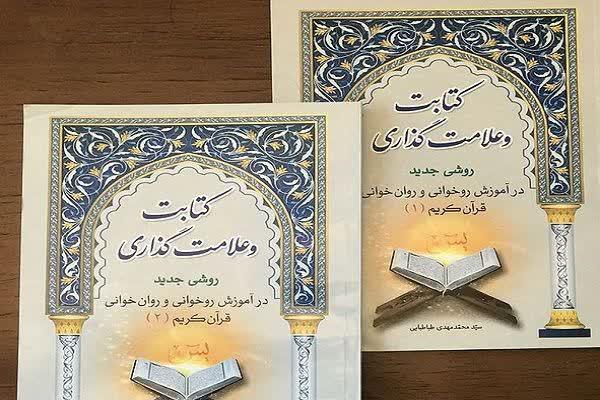 کتابت
و علامت گذاری
روشی جدید
در آموزش روخوانی و روان خوانی
قرآن کریم (۱)
سیّد محمّدمهدی طباطبایی
کتابت
و علامت گذاری
روشی جدید
در آموزش روخوانی و روان خوانی
قرآن کریم (۲)